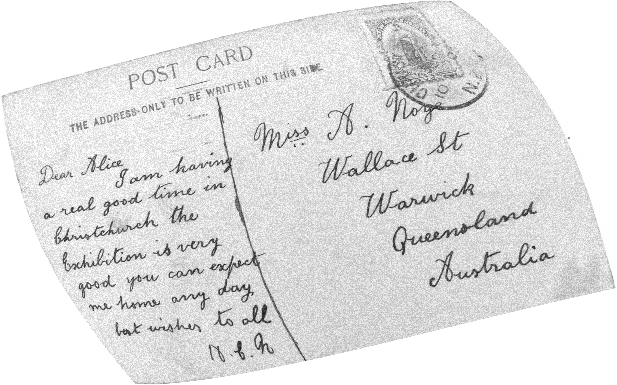 POST CARD
THE ADDRESS ONLY TO BE WRITTEN ON THIS SIDE
Dear Alice
I am having
a real good time in
Christchurch the
Exhibition is very
good you can expect
me home any day
best wishes to all
Miss A. Noye
Wallace St
Warwick
Queensland
Australia